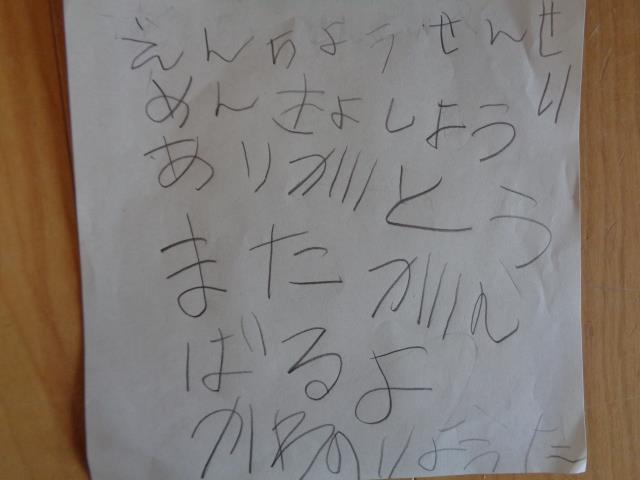 えんちようせんせい
めんきよしよう
ありがとう
またがん
ばるよ
りょうた